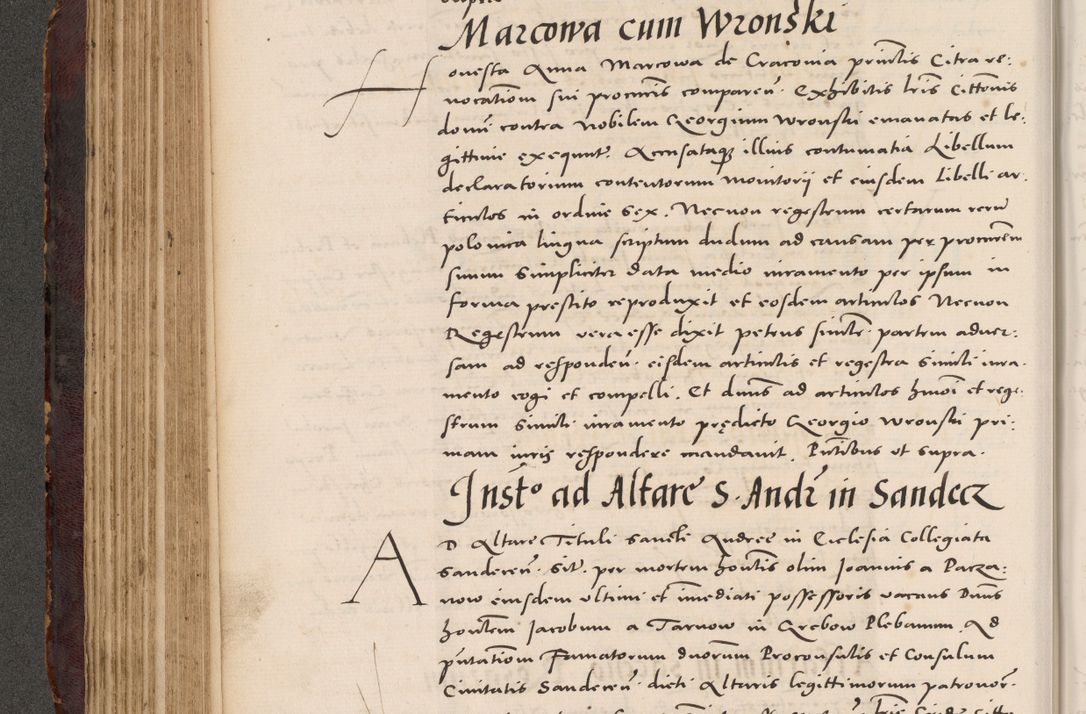 Marcowa cum Wronski
Honesta Anna Marcowa de Cracovia prīntis Citra re:
vocatiom sui procuris compareñ. Exhibitis lris Cittōnis
domi contra Nobilem Georgium Wronski emanatas et le:
gittime exequut. Accusataq illius contumatia Libellum
declaratorium contentorum monitorij et eiusdem Libelli ar:
ticulos in ordine sex. Necnon regestrum certarum rerū
polonica lingua scriptum dudum ad causam per procurem
suum simpliciter data medio iuramento per ipsum in
forma prestito reproduxit et eosdem articulos Necnon
Regestrum vera esse dixit petens simīlr partem adver:
sam ad respondeñ. eisdem articulis et regestra simili iura:
mento cogi et compelli. Et dnus ad articulos hmōi et rege:
strum simili iuramento prędicto Georgio Wronski pri:
mam iuris respondere mandavit. Pntibus ut supra.
Instō ad Altare S. Andr in Sandecz
AD Altare Tituli sancte Andree in Ecclesia Collegiata
Sandeceñ. sit. per mortem honlis olim Joannis a Parza:
now eiusdem ultimi et imediati possessoris vacans Dnus
honlem Jacobum a Tarnow in Grebow Plebanum Ad
pntatiom Famatorum duorum Proconsulis et Consulum
Civitatis Sandeceñ. dicti Altaris legittimorum patronor.